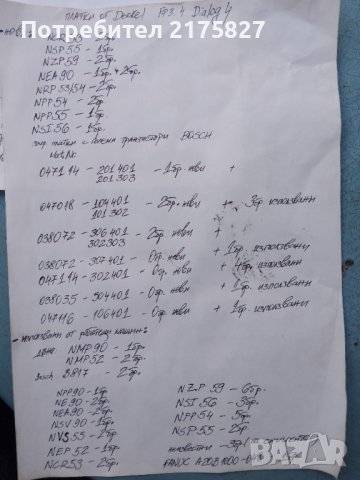 0 2175827
Платки от Deckel FP3. 4 Dialog 4
NSP55 - 1бр.
NZP59 - 2бр.
NEA90 - 1бр. + 2бр.
NRP53/54 - 2бр.
NPP54 - 2бр
NPP55 - 1бр.
NSI56 - 1бр.
платки с големи транзистори BOSCH
047114 - 201401 - 1бр. нови +
201303
047018 - 104401 - 2бр. нови + 3бр използвани
101302
038072 - 306401 - 2бр нови
302303
038072 - 307401 - 0бр. нови + 1бр. използвани
047114 - 302401 - 0бр. нови + 1бр. използвани
038035 - 504401 - 0бр. нови + 1бр. използвани
047116 - 106401 - 0бр. нови + 1бр. използвани
използвани от работещи машини:
NMP90 - 1бр.
NMP52 - 2бр.
Bosch 3817 - 2бр.
NPP90 - 1бр
NE90 - 2бр.
NEA90 - 2бр.
NSV90 - 1бр.
NVS55 - 2бр.
NEP52 - 1бр.
NCR53 - 2бр.
NZP59 - 6бр.
NSI56 - 3бр.
NPP54 - 5бр.
NSP55 - 2бр.
FANUC A20B-1000-
BAZAR
bg